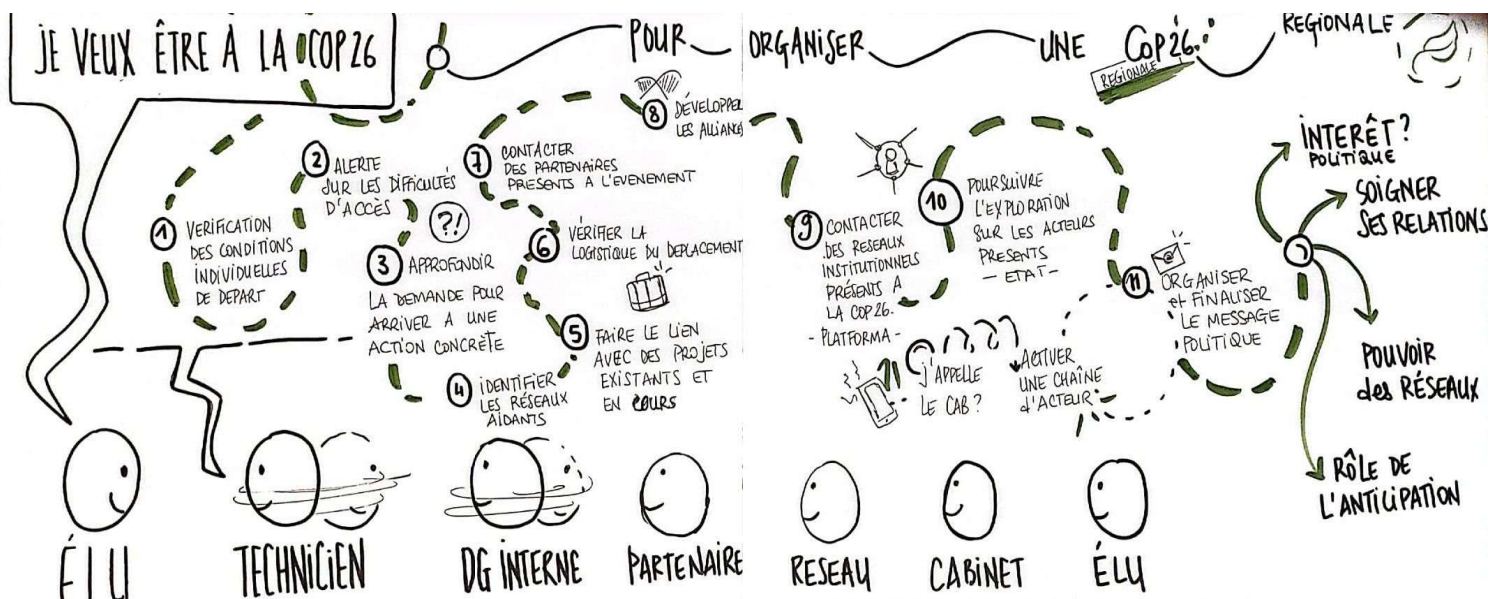 JE VEUX ÊTRE À LA COP26
POUR ORGANISER UNE COP26 REGIONALE
REGIONALE
1 VERIFICATION
DES CONDITIONS
INDIVIDUELLES
DE DEPART
2 ALERTE
SUR LES DIFFICULTÉS
D'ACCÈS
?!
3 APPROFONDIR
LA DEMANDE POUR
ARRIVER A UNE
ACTION CONCRÈTE
4 IDENTIFIER
LES RÉSEAUX
AIDANTS
5 FAIRE LE LIEN
AVEC DES PROJETS
EXISTANTS ET
EN COURS
6 VÉRIFIER LA
LOGISTIQUE DU DEPLACEMENT
7 CONTACTER
DES PARTENAIRES
PRESENTS A L'EVENEMENT
8 DÉVELOPPER
LES ALLIANC
9 CONTACTER
DES RESEAUX
INSTITUTIONNELS
PRÉSENTS A
LA COP26.
- PLATFORMA -
10 POURSUIVRE
L'EXPLORATION
SUR LES ACTEURS
PRESENTS
- ETAT -
J'APPELLE
LE CAB ?
ACTIVER
UNE CHAÎNE
d'ACTEUR
11 ORGANISER
et FINALISER
LE MESSAGE
POLITIQUE
@
INTERÊT ?
POLITIQUE
SOIGNER
SES RELATIONS
POUVOIR
des RÉSEAUX
RÔLE DE
L'ANTICIPATION
ÉLU
TECHNICIEN
DG INTERNE
PARTENAIRE
RESEAU
CABINET
ÉLU